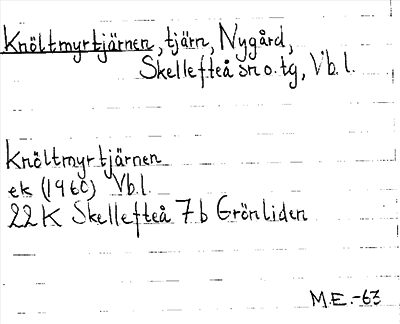 Knöltmyrtjärnen, tjärn, Nygård,
Skellefteå sn o. tg, Vb. l.
Knöltmyrtjärnen
ek (1960) Vb. l.
22 K Skellefteå 7 b Grönliden
M.E.-63